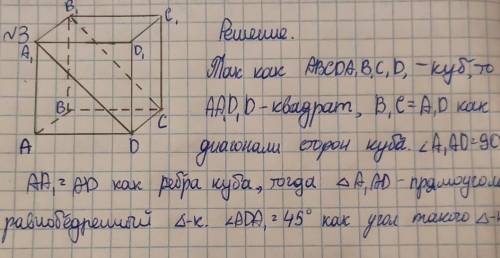 №3
B₁
C₁
A₁
D₁
B
C
A
D
Решение.
Так как ABCDA₁B₁C₁D₁ - куб, то
AA₁D₁D - квадрат, B₁C = A₁D как
диагонали сторон куба. ∠A₁AD = 90
AA₁ = AD как ребра куба, тогда △A₁AD - прямоугол
равнобедренный △-к. ∠ADA₁ = 45° как угол такого △-